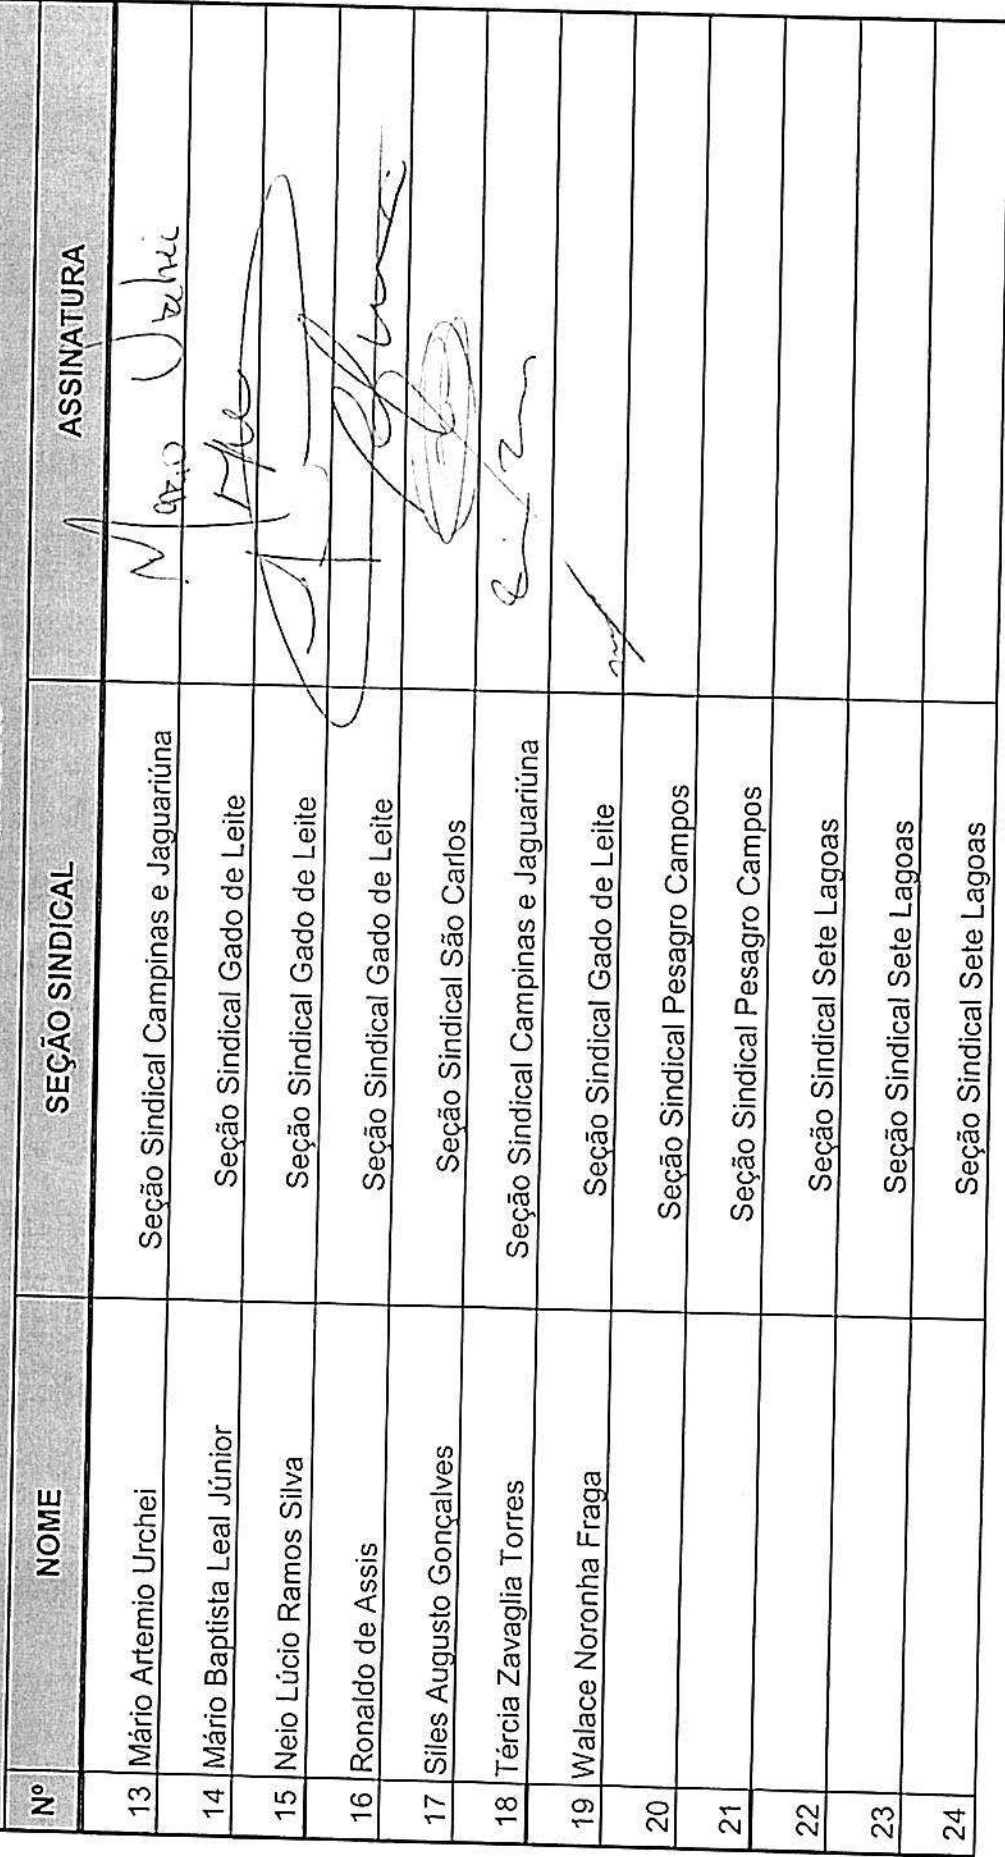 Nº NOME SEÇÃO SINDICAL ASSINATURA
13 Mário Artemio Urchei Seção Sindical Campinas e Jaguariúna Mario Urchei
14 Mário Baptista Leal Júnior Seção Sindical Gado de Leite
15 Neio Lúcio Ramos Silva Seção Sindical Gado de Leite
16 Ronaldo de Assis Seção Sindical Gado de Leite
17 Siles Augusto Gonçalves Seção Sindical São Carlos
18 Tércia Zavaglia Torres Seção Sindical Campinas e Jaguariúna
19 Walace Noronha Fraga Seção Sindical Gado de Leite
20 Seção Sindical Pesagro Campos
21 Seção Sindical Pesagro Campos
22 Seção Sindical Sete Lagoas
23 Seção Sindical Sete Lagoas
24 Seção Sindical Sete Lagoas